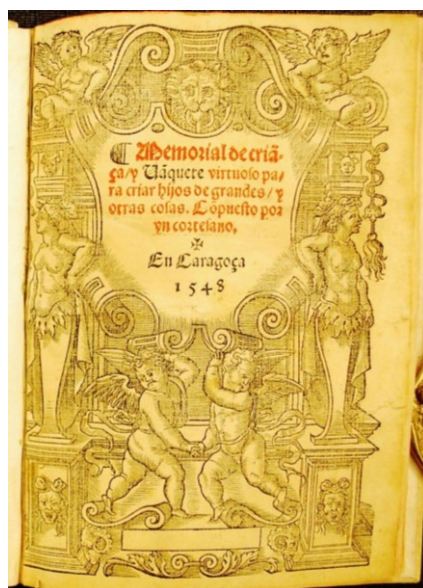 ☾ Memorial de criã-
ça/y Vãquete virtuoso pa-
ra criar hijos de grandes/ y
otras cosas. Cõpuesto por
vn cortesano.
✠
En Caragoça
1548